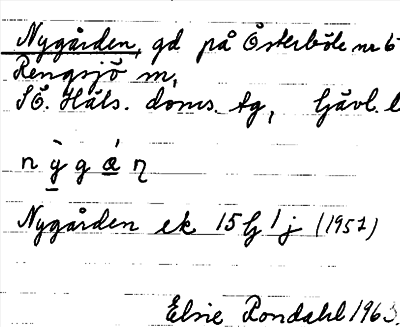 Nygården, gd på Österböle nr 6
Rengsjö sn,
SÖ. Häls. doms. tg, Gävl. l
n ỳ̠ g á̠ ɳ
Nygården ek 15G 1j (1957)
Elsie Rondahl 1963.